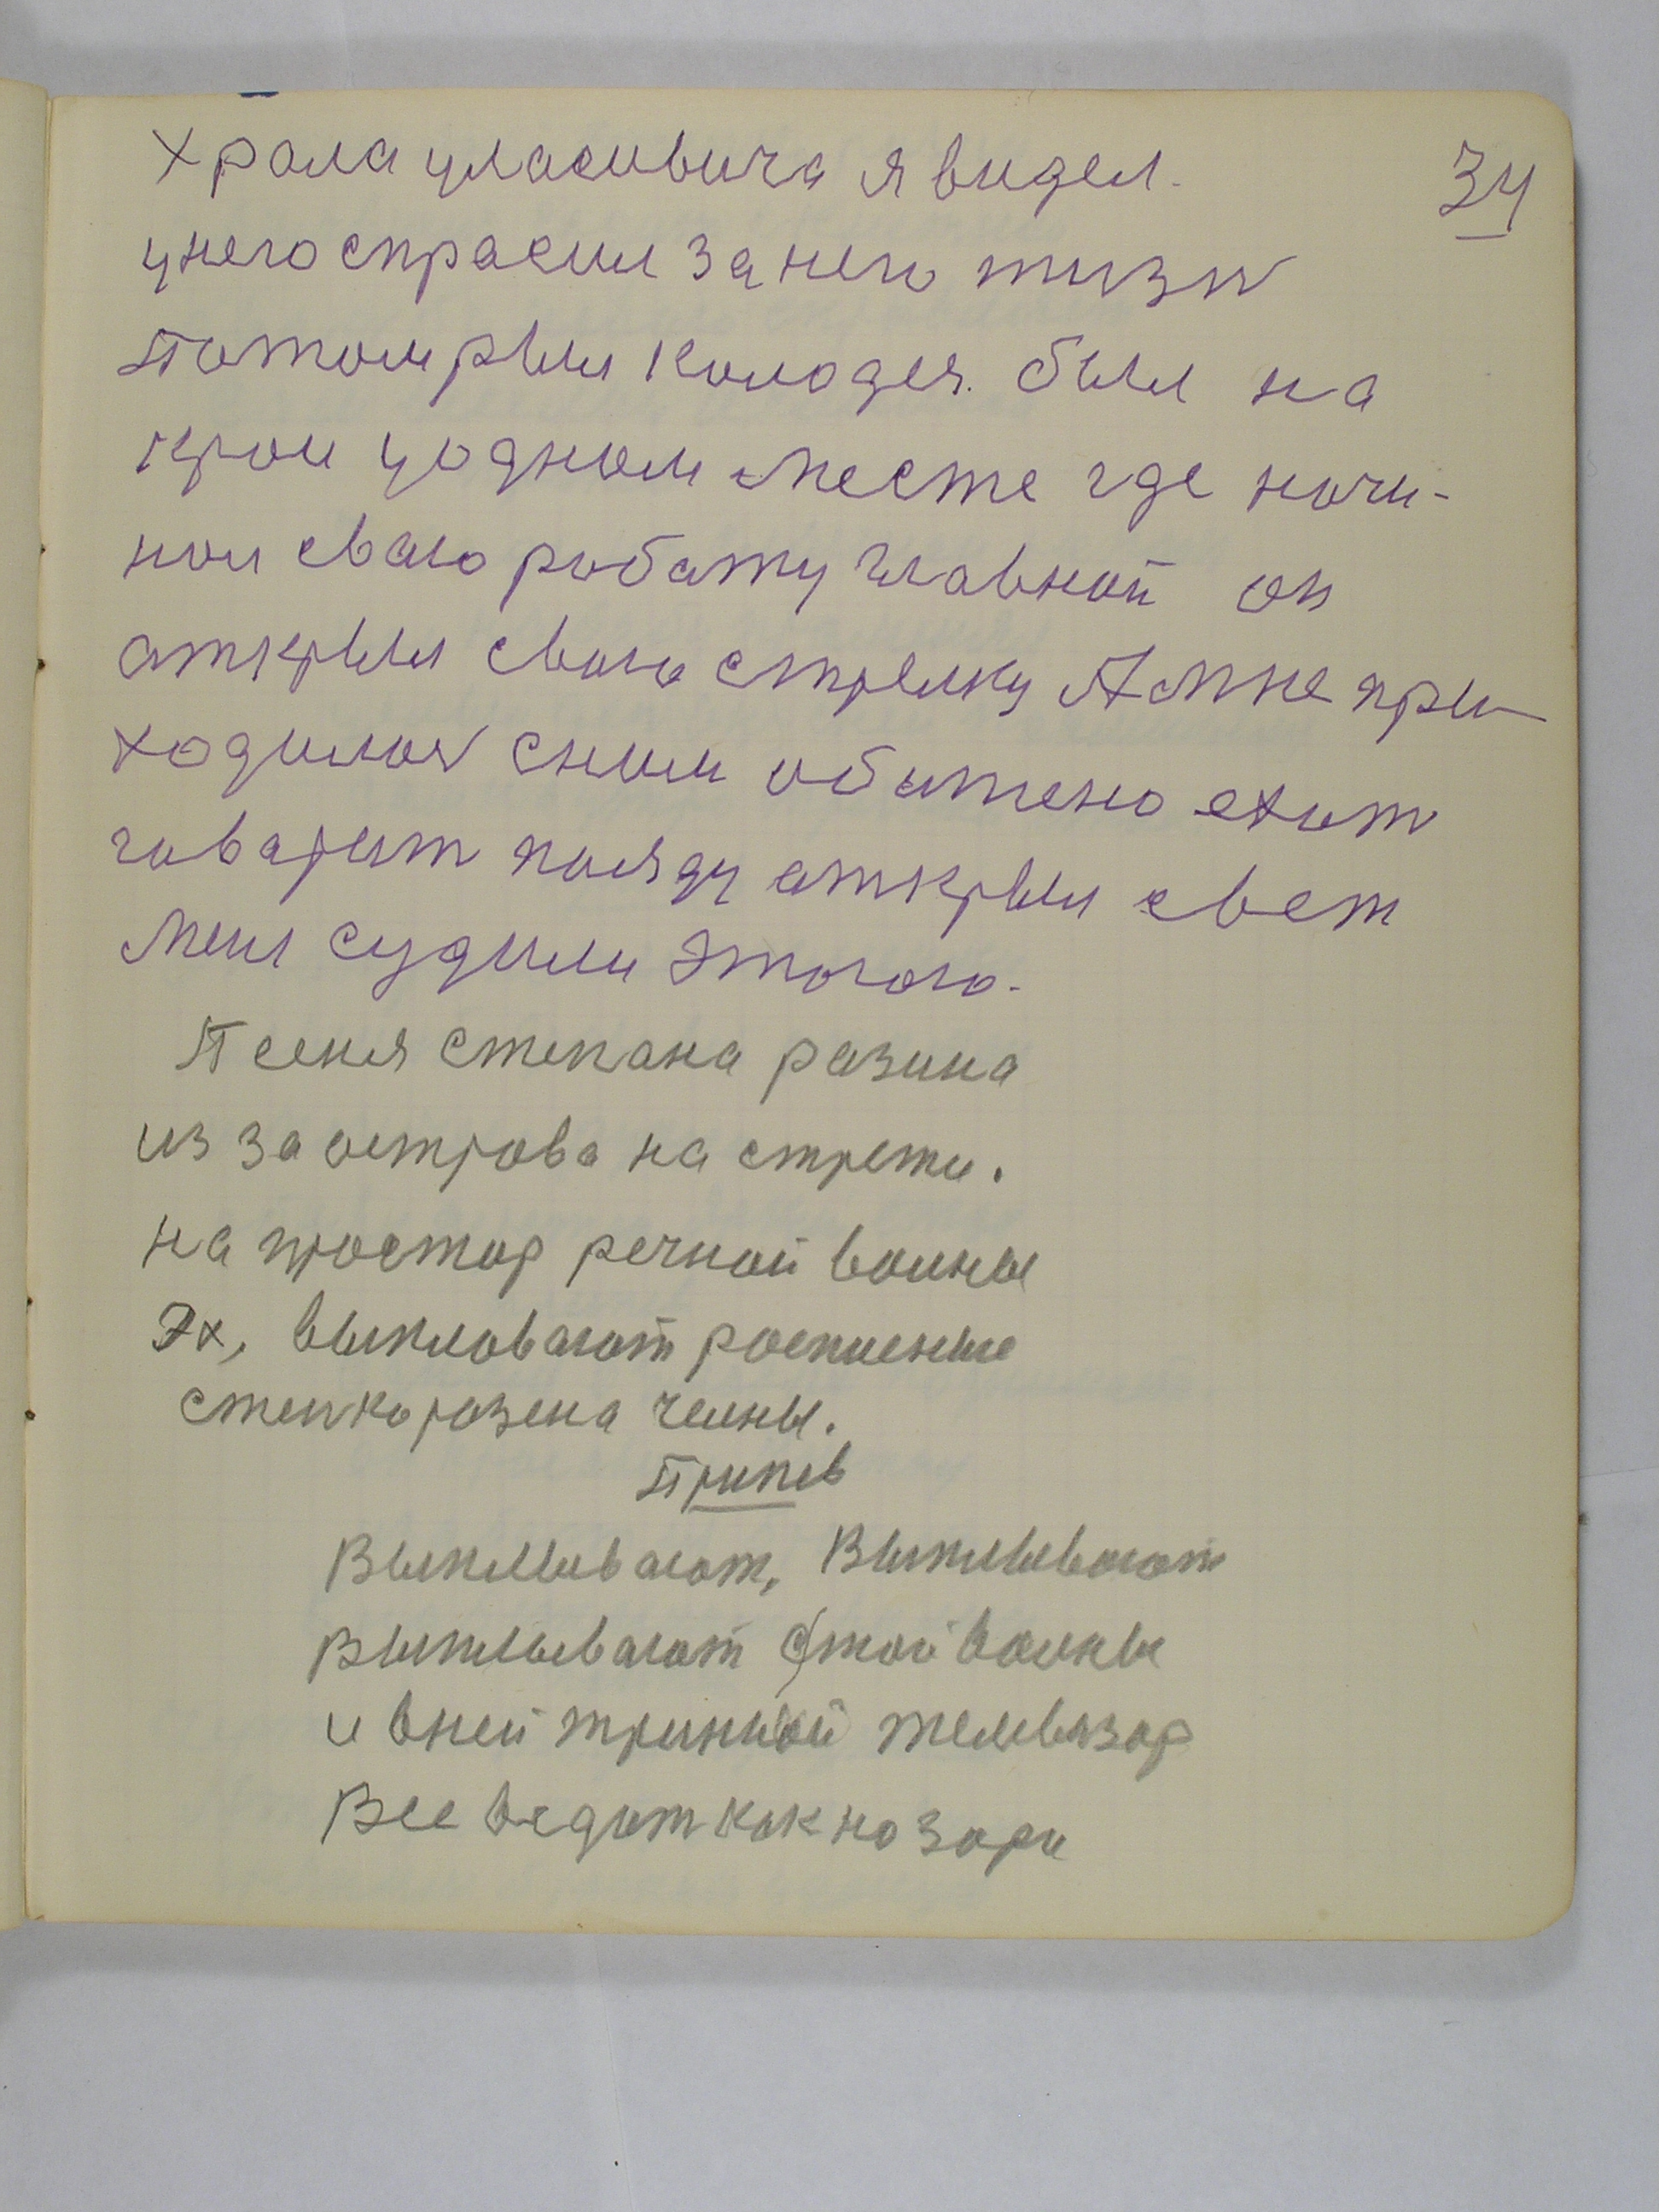 34
Храла уласовича я видел.
унего спрасил за него тизн
Потом рыл колодея. был на
крои уодном месте где начи-
нол сваю работу главной он
аткрыл сваю стрелку А мне при-
ходилос сним обитено
говарит поязду аткрыл свет
Меня судили этогою.
Песня степана разина
из за острова на стрети.
на простор речной волны
Эх, выпловают роспиеные
стенко разена челны.
Припев
Выплывают, Выплывают
Выплывают стой волны
и вней тринной телевизор
Все ведит как но зари